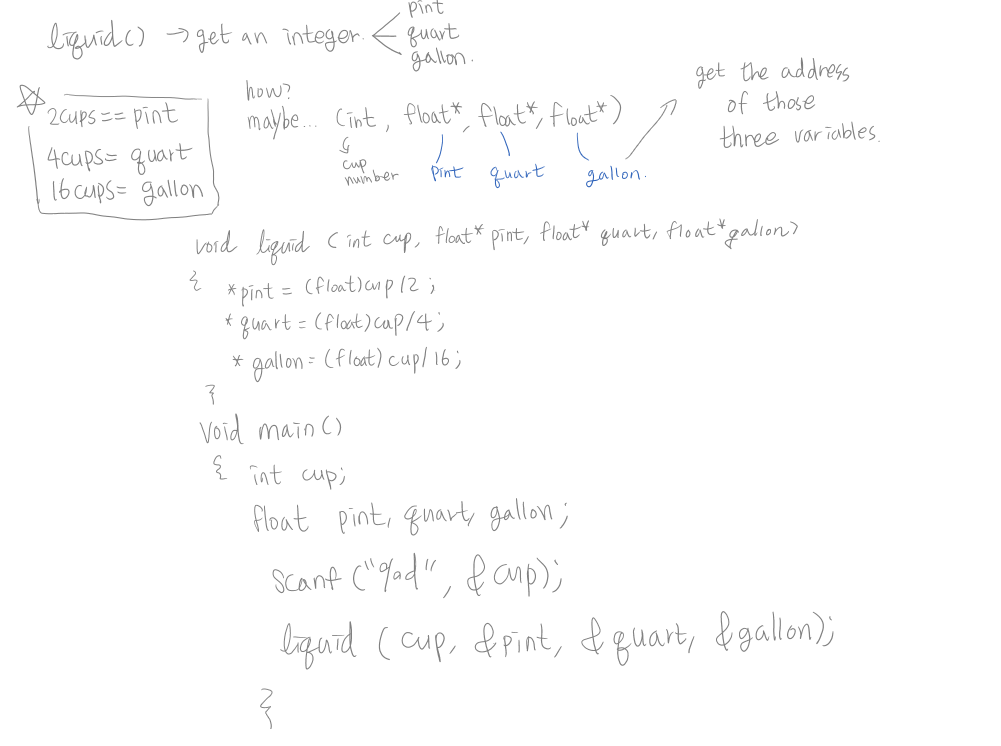 liquid() → get an integer.
pint
quart
gallon.
☆
2cups == pint
4cups = quart
16cups = gallon
how?
maybe... (int, float*, float*, float*)
cup
number
pint quart gallon.
get the address
of those
three variables.
void liquid (int cup, float* pint, float* quart, float* gallon)
{ *pint = (float)cup/2 ;
*quart = (float)cup/4;
*gallon = (float) cup/16;
}
Void main()
{ int cup;
float pint, quart, gallon;
scanf ("%d", &cup);
liquid (cup, &pint, &quart, &gallon);
}